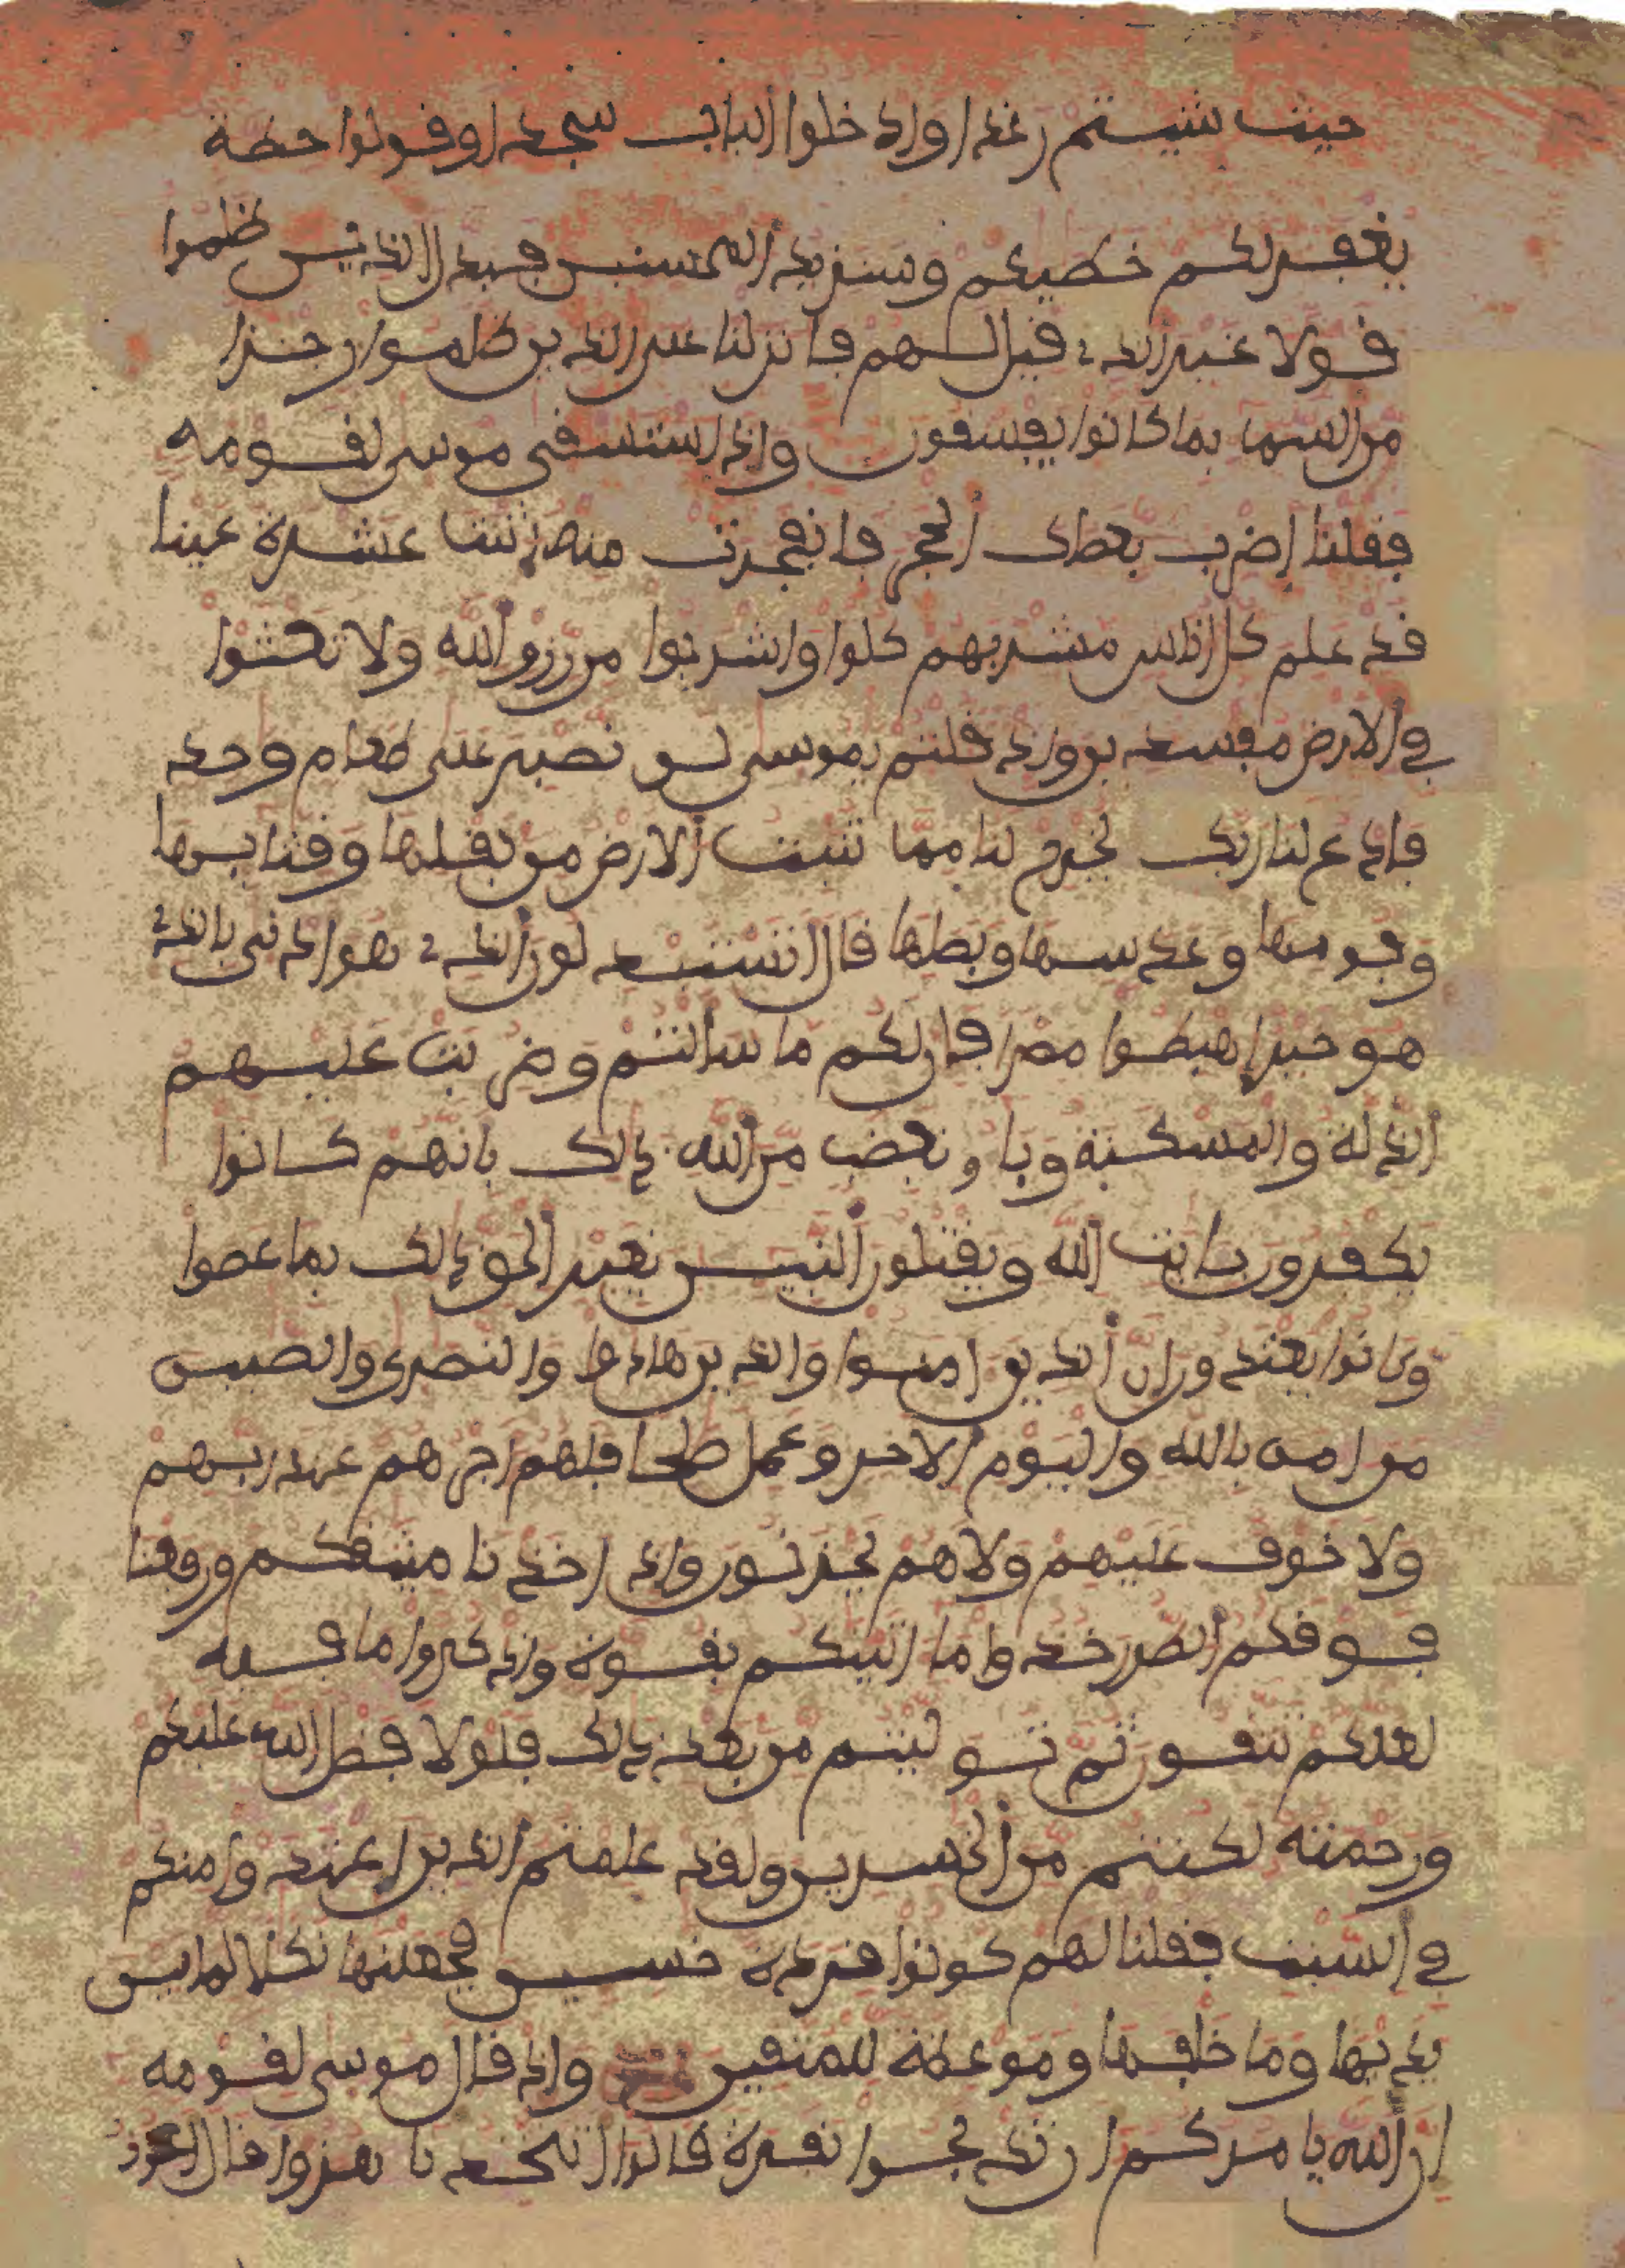 حيث شيتم رغدا وادخلوا الباب سجدا وقولوا حطة
يغفر لكم خطيكم وسنزيد المحسنين فبدل الذين ظلموا
قولا غير الذي قيل لهم فانزلنا على الذين ظلموا رجزا
من السما بما كانوا يفسقون واذ استسقى موسى لقومه
فقلنا اضرب بعصاك الحجر فانفجرت منه اثنتا عشرة عينا
قد علم كل اناس مشربهم كلوا واشربوا من رزق الله ولا تعثوا
في الارض مفسدين واذ قلتم يموسى لن نصبر على طعام وحد
فادع لنا ربك يخرج لنا مما تنبت الارض من بقلها وقثايها
وفومها وعدسها وبصلها قال اتستبدلون الذي هو ادنى بالذي
هو خير اهبطوا مصرا فان لكم ما سالتم وضربت عليهم
الذلة والمسكنة وباو بغضب من الله ذلك بانهم كانوا
يكفرون بايت الله ويقتلون النبين بغير الحق ذلك بما عصوا
وكانوا يعتدون ان الذين امنوا والذين هادوا والنصرى والصبين
من امن بالله واليوم الاخر وعمل صلحا فلهم اجرهم عند ربهم
ولا خوف عليهم ولا هم يحزنون واذ اخذنا ميثقكم ورفعنا
فوقكم الطور خذوا ما اتينكم بقوة واذكروا ما فيه
لعلكم تتقون ثم توليتم من بعد ذلك فلولا فضل الله عليكم
ورحمته لكنتم من الخسرين ولقد علمتم الذين اعتدوا منكم
في السبت فقلنا لهم كونوا قردة خسين فجعلنها نكلا لما بين
يديها وما خلفها وموعظة للمتقين واذ قال موسى لقومه
ان الله يامركم ان تذبحوا بقرة قالوا اتتخذنا هزوا قال اعوذ